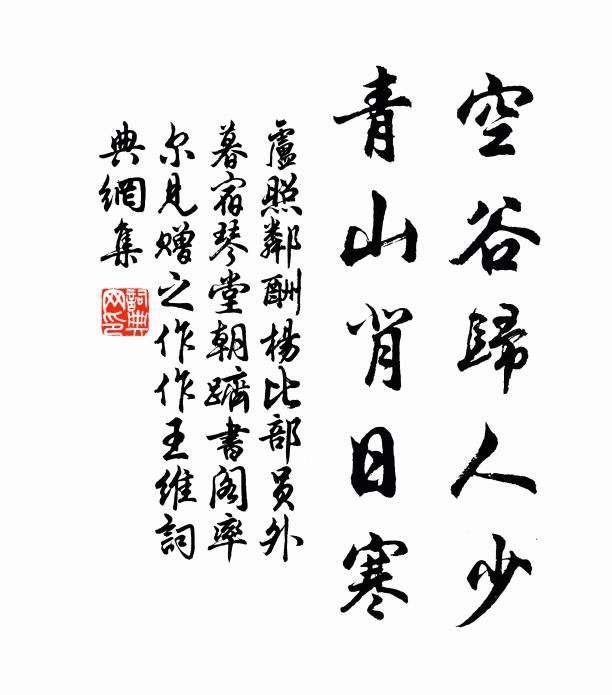 空谷歸人少
青山背日寒
盧照鄰酬楊比部員外
暮宿琴堂朝躋書閣率
尔見贈之作作王維詞
典網集
詞典
网印